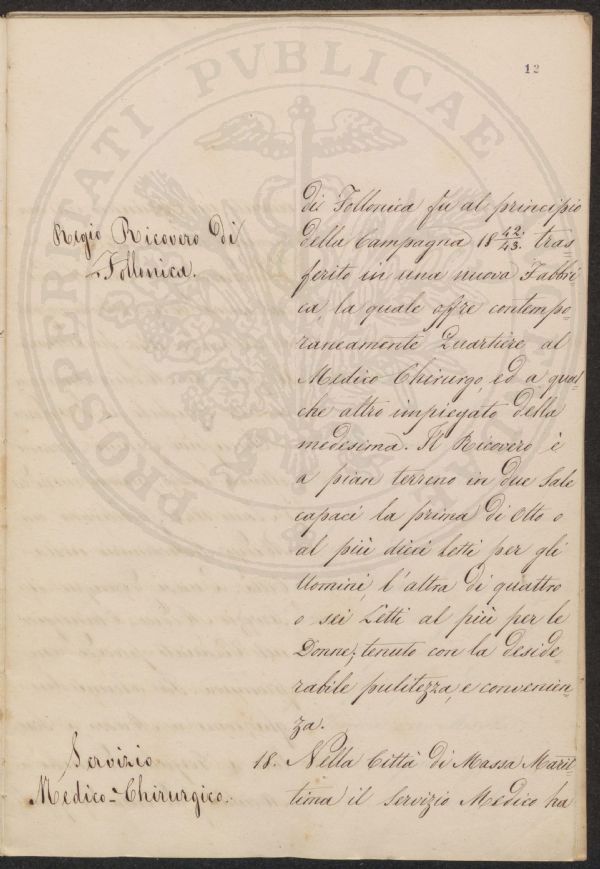 12
PROSPERITATI PVBLICAE
Regio Ricovero di
Follonica.
di Follonica fu al principio
della Campagna 18 42./43. tras
ferito in una nuova Fabbri
ca, la quale offre contempo-
raneamente Quartiere al
Medico Chirurgo, ed a qual
che altro impiegato della
medesima. Il Ricovero è
a pian terreno in due Sale
capaci la prima di Otto o
al più dieci Letti per gli
Uomini, l'altra di quattro
o sei Letti al più per le
Donne; tenuto con la deside-
rabile pulitezza, e convenien-
za.
Servizio
Medico-Chirurgico.
18. Nella Città di Massa Marit-
tima il Servizio Medico ha